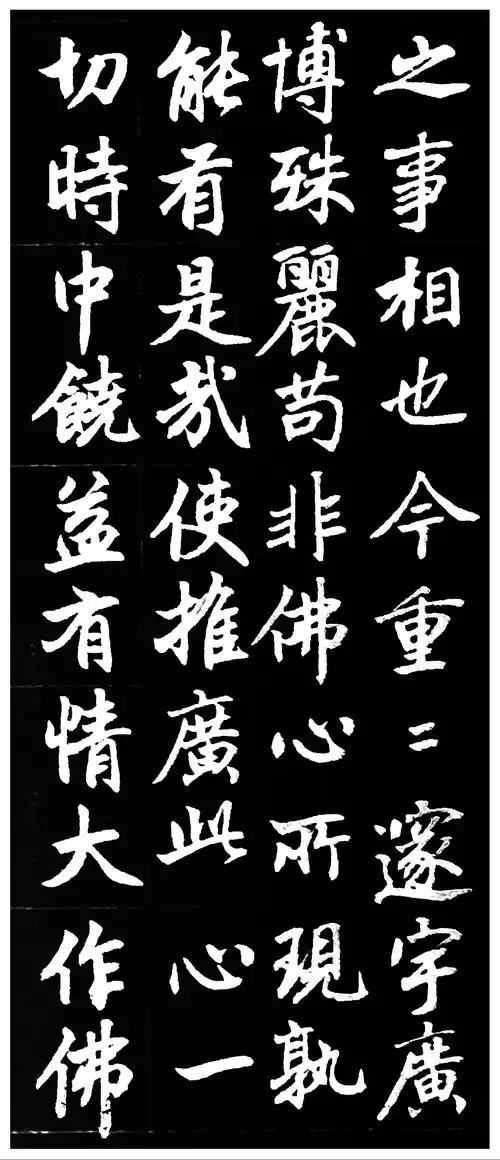 之事相也今重〻邃宇廣
博殊麗苟非佛心所現孰
能有是哉使推廣此心一
切時中饒益有情大作佛